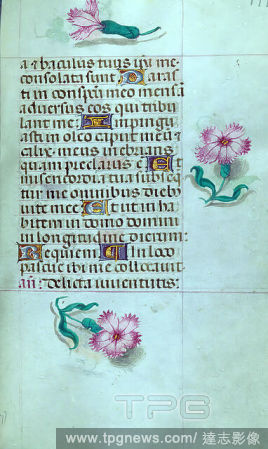 a et baculus tuus ipsi me
consolata sunt Paras
ti in conspectu meo mensã
adversus eos qui tribu
lant me Impingu
asti in oleo caput meũ et
calix meus inebrians
quam preclarus ẽ Et
misericordia tua subseq
tur me omnibus diebus
vite mee Et ut in ha
bitem in domo domini
in longitudinẽ dierum:
Requiem In loco
pascue ibi me collocavit
añ: Delicta iuventutis:
TPG
www.tpgnews.com/達志影像